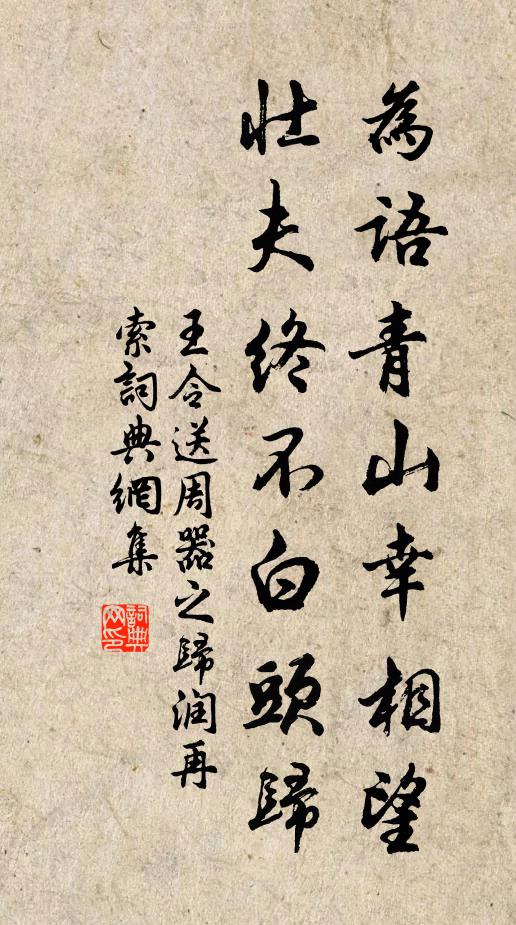 為語青山幸相望
壯夫終不白頭歸
王令送周器之歸潤再
索詞典網集
詞典网印